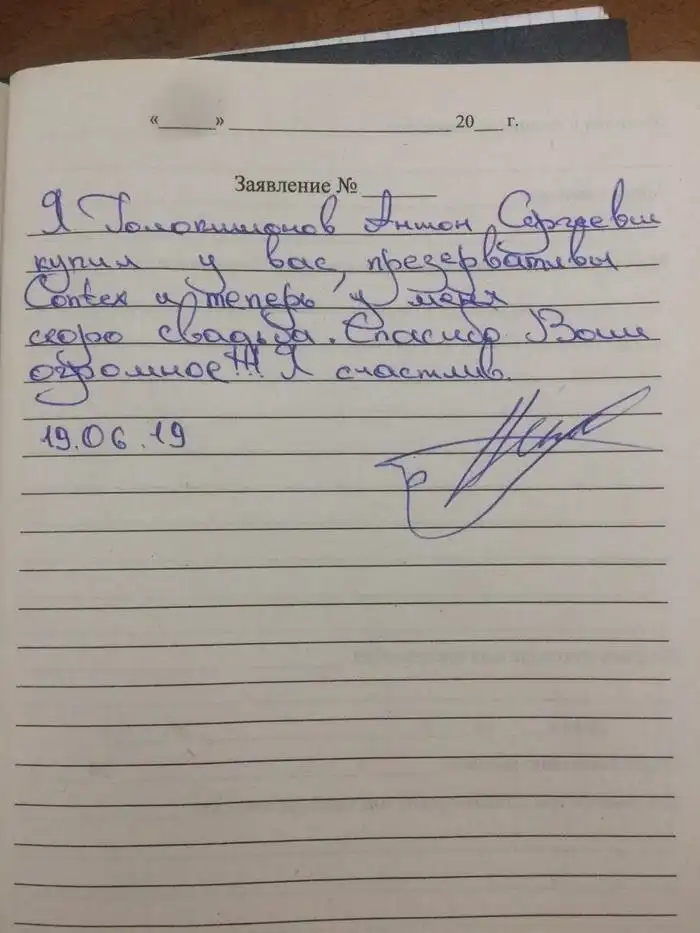 «______» ______________________ 20___ г.
Заявление № ________
Я Антон Сергеевич
купил у вас презервативы
Contex и теперь у меня
скоро свадьба. Спасибо Вам
огромное!!! Я счастлив.
19.06.19